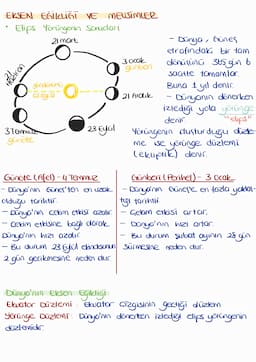 EKSEN EĞİKLİĞİ VE MEVSİMLER
• Elips Yörüngenin Sonuçları
21 mart
3 ocak
günberi
21 Haziran
21 Aralık
3 Temmuz
günöte
23 Eylül
- Dünya, Güneş
etrafındaki bir tam
dönüşünü 365 gün 6
saatte tamamlar.
Buna 1 yıl denir.
- Dünyanın dönerken
izlediği yola yörünge
denir "elips"
Yörüngenin oluşturduğu düzle-
me ise yörünge düzlemi
(ekliptik) denir.
Günöte (Afel) - 4 Temmuz
- Dünya'nın Güneş'ten en uzak
olduğu tarihtir.
- Dünya'nın çekim etkisi azalır.
- Çekim etkisine bağlı olarak
Dünya'nın hızı azalır.
- Bu durum 23 Eylül ekinoksunun
2 gün gecikmesine neden olur.
Günberi (Perihel) - 3 Ocak
- Dünya'nın Güneş'e en fazla yaklaş-
tığı tarihtir.
- Çekim etkisi artar.
- Dünya'nın hızı artar.
- Bu durum şubat ayının 28 gün
sürmesine neden olur.
Dünya'nın Eksen Eğikliği:
Ekvator Düzlemi: Ekvator çizgisinin geçtiği düzlem
Yörünge Düzlemi: Dünya'nın dönerken izlediği elips yörüngenin
düzlemidir.